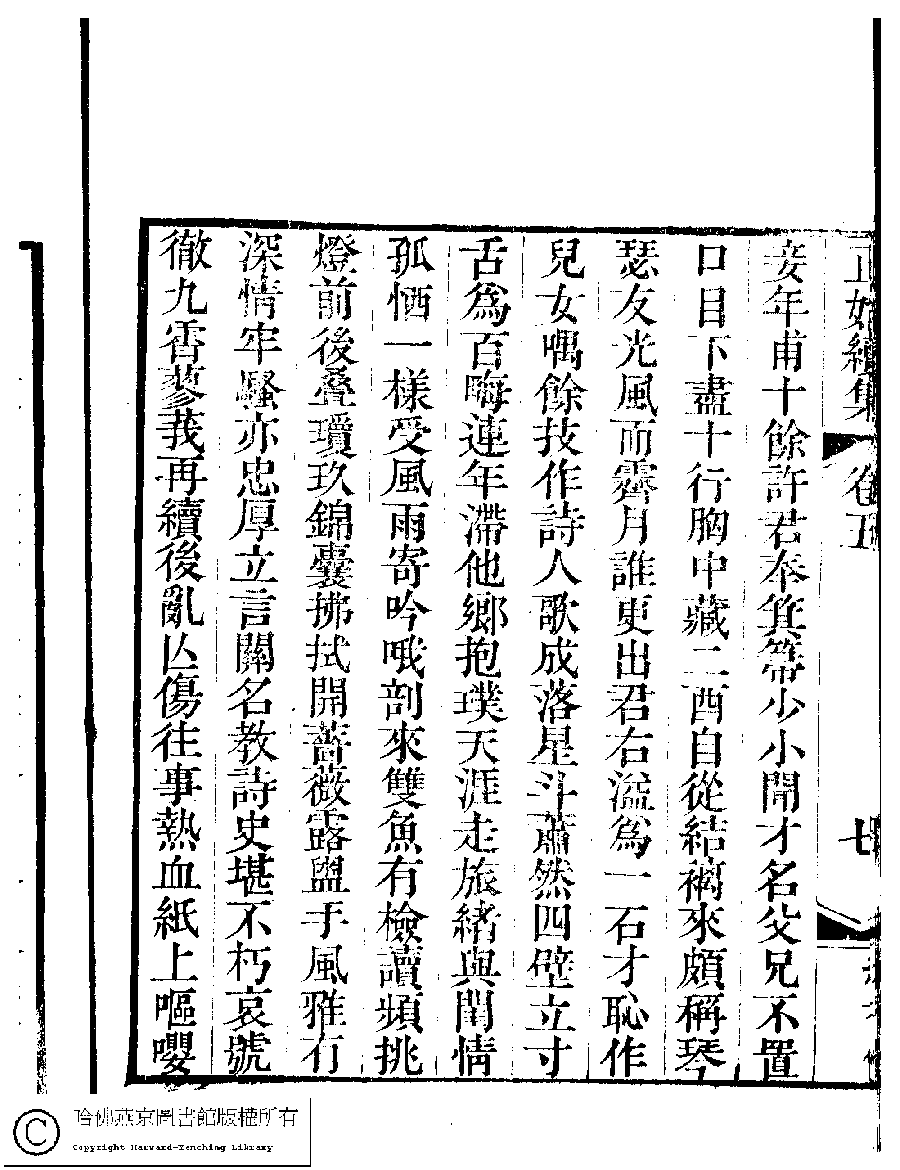 正始續集 卷五 七
妾年甫十餘許君奉箕箒少小聞才名父兄不置
口目下盡十行胸中藏二酉自從結褵來頗稱琴
瑟友光風而霽月誰更出君右溢爲一石才恥作
兒女喁餘技作詩人歌成落星斗蕭然四壁立寸
舌爲百晦連年滯他鄉抱璞天涯走旅緒與閨情
孤恓一樣受風雨寄吟哦剖來雙魚有檢讀頻挑
燈前後疊瓊玖錦囊拂拭開薔薇露盥手風雅有
深情牢騷亦忠厚立言關名教詩史堪不朽哀號
徹九霄蓼莪再續後亂亾傷往事熱血紙上嘔嚶
哈佛燕京圖書館版權所有
Copyright Harvard-Yenching Library